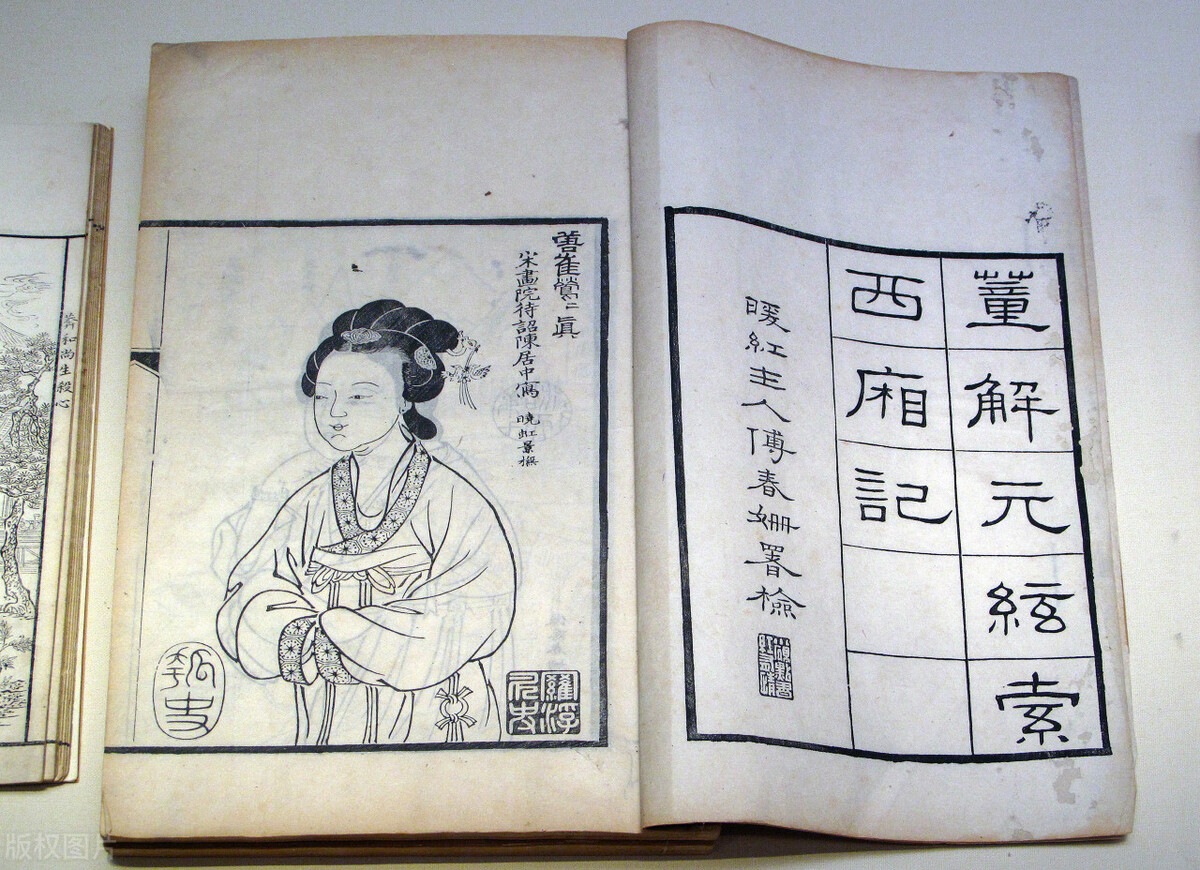 董解元絃索
西廂記
暖紅主人傅春姍署檢
崔鶯〻真
宋畫院待詔陳居中寫
曉虹景橅
羅浮
尚生殺心
版权图片